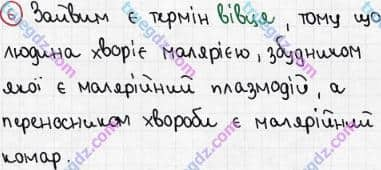 б) Зайвим є термін вівця, тому що
людина хворіє малярією, збудником
якої є малярійний плазмодій, а
переносником хвороби є малярійний
комар.